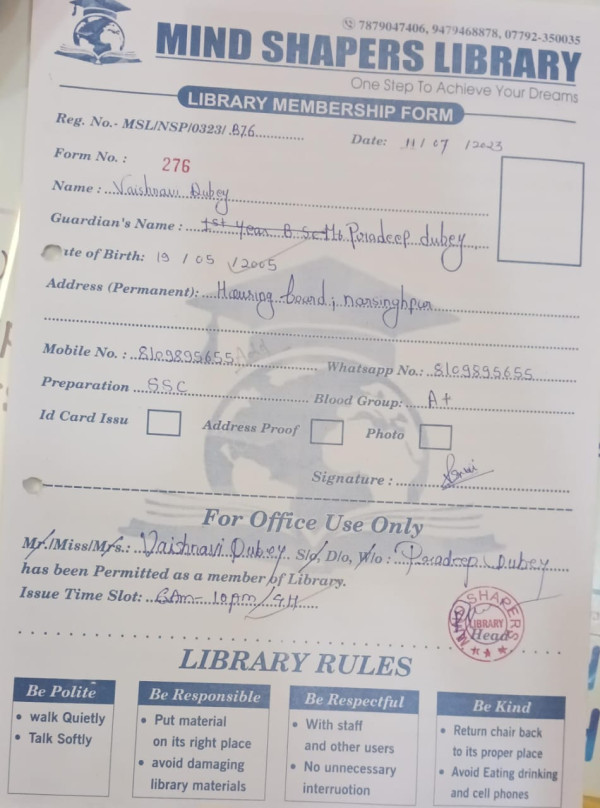 7879047406, 9479468878, 07792-350035
MIND SHAPERS LIBRARY
One Step To Achieve Your Dreams
LIBRARY MEMBERSHIP FORM
Reg. No.- MSL/NSP/0323/ B76
Date: 11 / 07 /2023
Form No. : 276
Name : Vaishnavi Dubey
Guardian's Name : 1st Year B Sc Mr. Paradeep dubey
te of Birth: 19 / 05 /2005
Address (Permanent): Housing board, narsinghpur
Mobile No. : 8109895655 Whatsapp No.: 8109895655
Preparation SSC Blood Group: A+
Id Card Issu Address Proof Photo
Signature :
For Office Use Only
Mr./Miss/Mrs.: Vaishnavi Dubey S/o, D/o, W/o : Paradeep Dubey
has been Permitted as a member of Library.
Issue Time Slot: 6Am - 10pm / 9H
MIND SHAPERS
LIBRARY
Head
LIBRARY RULES
Be Polite
• walk Quietly
• Talk Softly
Be Responsible
• Put material
on its right place
• avoid damaging
library materials
Be Respectful
• With staff
and other users
• No unnecessary
interruotion
Be Kind
• Return chair back
to its proper place
• Avoid Eating drinking
and cell phones